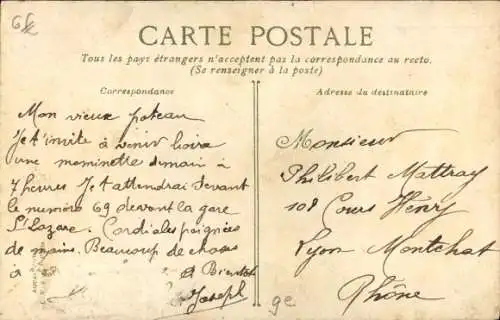 CARTE POSTALE
Tous les pays étrangers n'acceptent pas la correspondance au recto.
(Se renseigner à la poste)
Correspondance
Adresse du destinataire
Mon vieux poteau
Je t'invite à venir boire
une mominette demain à
7 heures Je t attendrai devant
le numéro 69 devant la gare
St Lazare. Cordiales poignées
de mains. Beaucoup de choses
à
A Bientôt
Joseph
Monsieur
Philibert Mattray
108 Cours Henry
Lyon Montchat
Rhône
ge